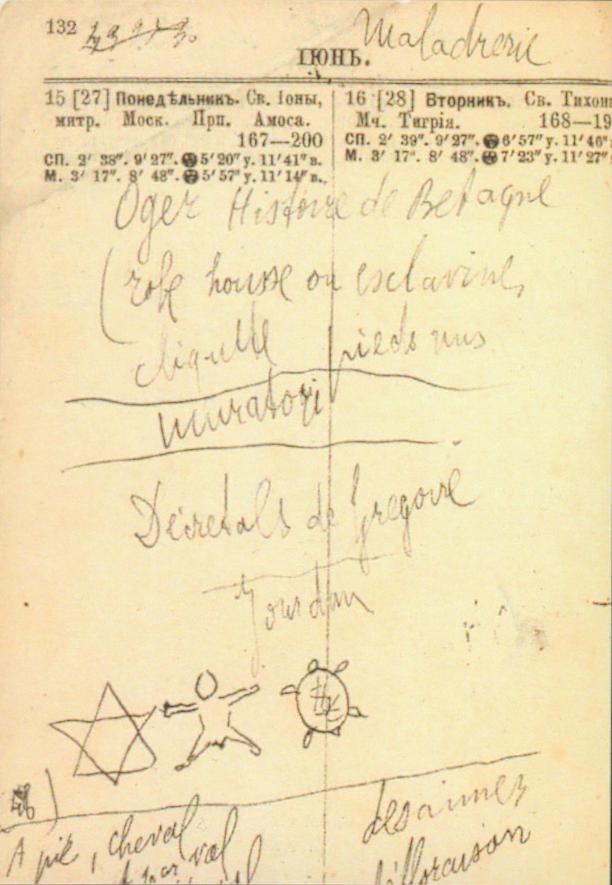 132 Maladrerie
ІЮНЬ.
15 [27] Понедѣльникъ. Св. Іоны,
митр. Моск. Прп. Амоса.
167—200
СП. 2′ 38″. 9′ 27″. 5′20″ у. 11′41″ в.
М. 3′ 17″. 8′ 48″. 5′57″ у. 11′14″ в.
16 [28] Вторникъ. Св. Тихон
Мч. Тигрія. 168—19
СП. 2′ 39″. 9′27″. 6′57″ у. 11′46″
М. 3′ 17″. 8′ 48″. 7′23″ у. 11′27″
Oger Histoire de Betagne
(robe housse ou esclavine,
cliquette pieds nus
Muratori
Décretals de Gregoire
Jourdan
A pié, cheval
val
desaimez